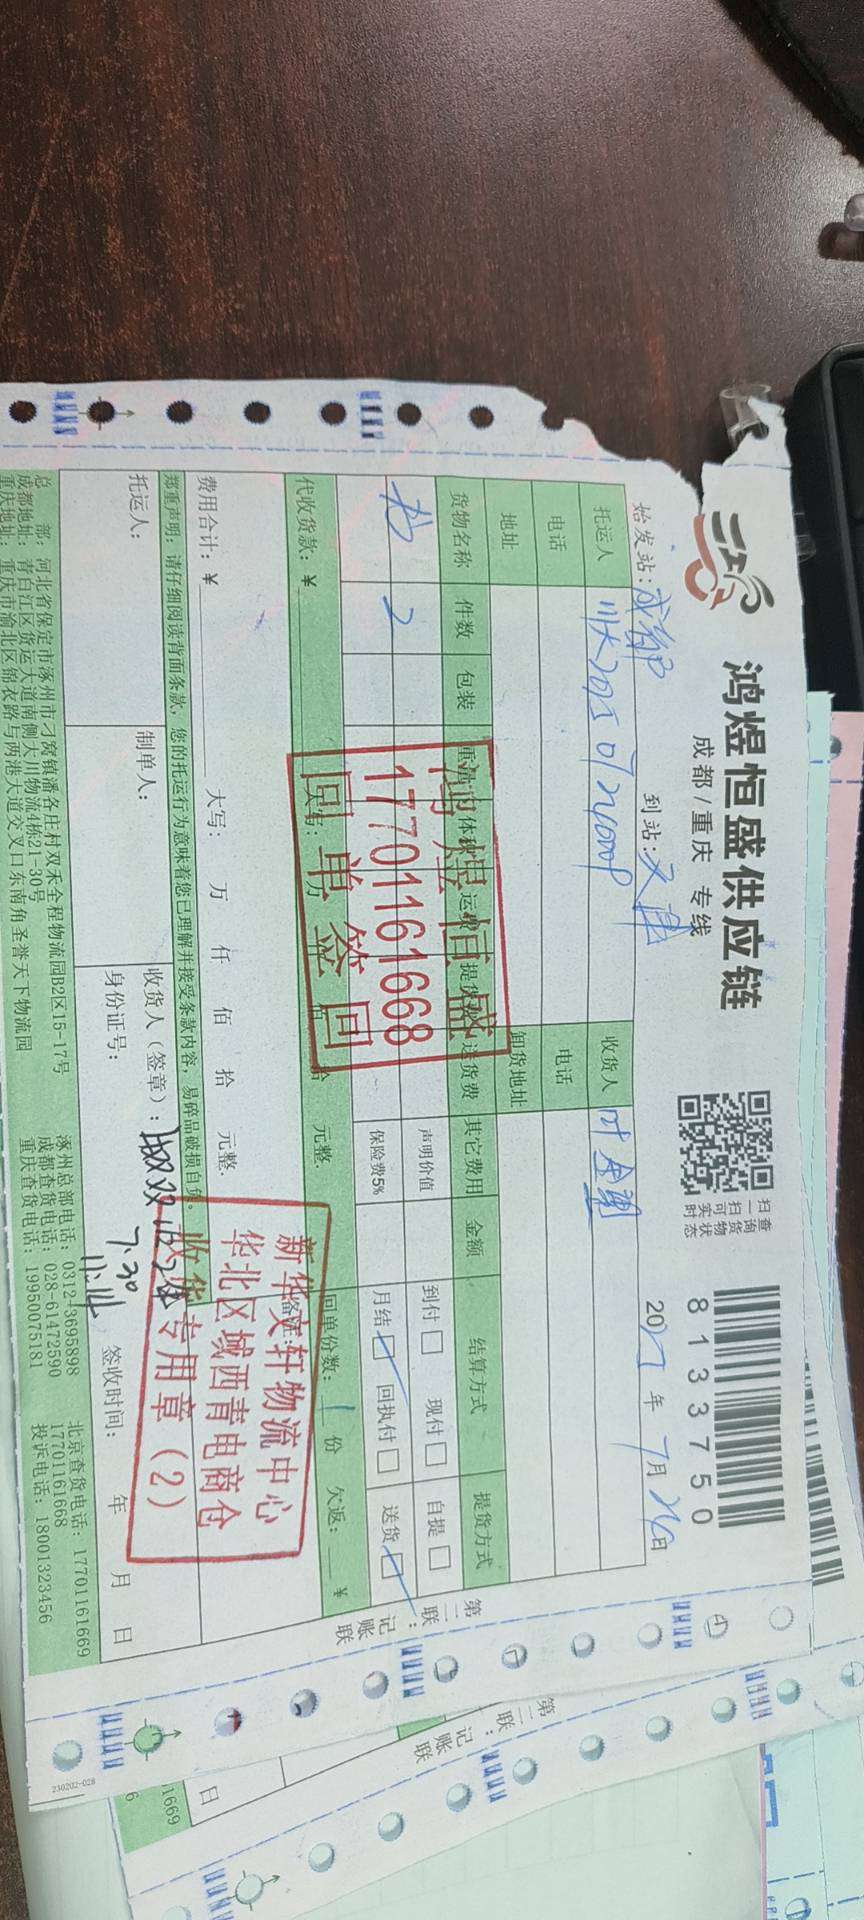 鸿煜恒盛供应链
成都/重庆 专线
扫一扫可实时
查询货物状态
8133750
始发站：成都
到站：天津
年 7月 日
托运人
收货人
电话
电话
地址
卸货地址
货物名称 件数 包装 重量 体积 运费 提货费 送货费 其它费用 金额 结算方式 提货方式
书 2
声明价值
到付 现付 自提
保险费5%
月结 回执付 送货
鸿煜恒盛
17701161668
回单签回
代收货款：¥
大写： 万 仟 佰 拾 元整.
回单份数：1 份 欠返： ¥
费用合计：¥
大写： 万 仟 佰 拾 元整.
备注：
郑重声明：请仔细阅读背面条款，您的托运行为意味着您已理解并接受条款内容，易碎品破损自负。
托运人：
制单人：
收货人（签章）：
7.30
11:14
身份证号：
签收时间： 年 月 日
新华文轩物流中心
华北区域西青电商仓
收货专用章（2）
总 部：河北省保定市涿州市刁窝镇潘各庄村双禾全程物流园B2区15-17号
涿州总部电话：0312-3695898
北京查货电话：17701161669
成都地址：青白江区货运大道南侧大川物流4栋21-30号
成都查货电话：028-61472590
17701161668
重庆地址：重庆市渝北区锦衣路与两港大道交叉口东南角圣誉天下物流园
重庆查货电话：19950075181
投诉电话：18001323456
第二联：记账联
230202-028
第二联：记账联
日
1669
6